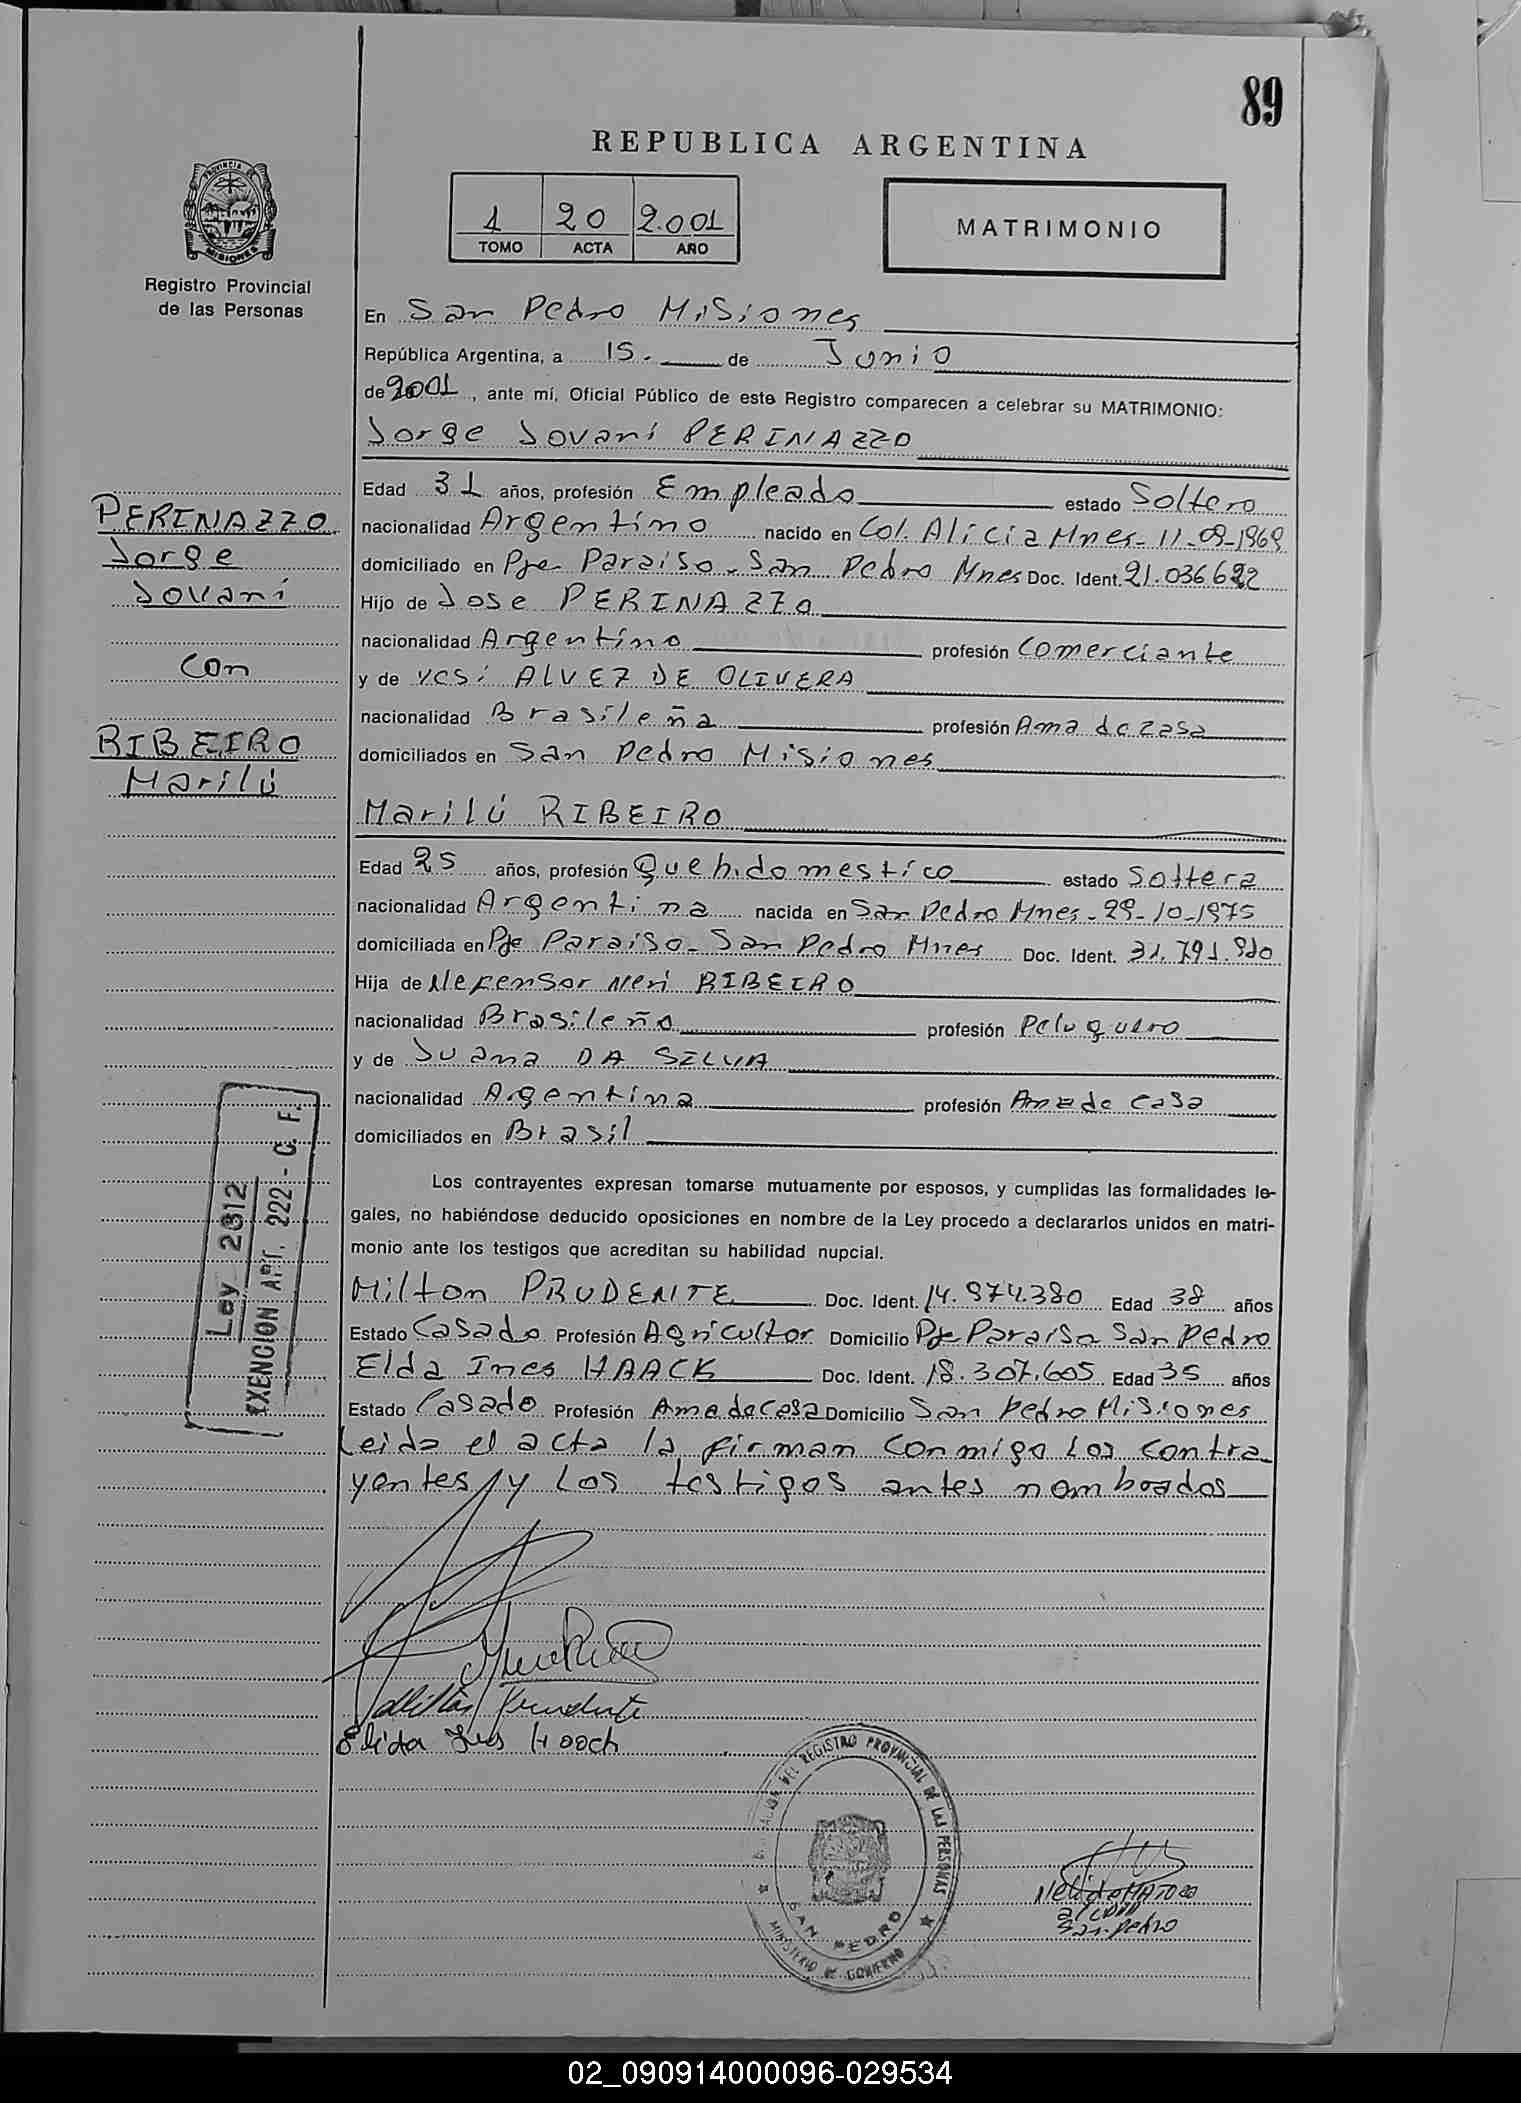 89
REPUBLICA ARGENTINA
1 20 2.001
TOMO ACTA AÑO
MATRIMONIO
PROVINCIA DE
MISIONES
Registro Provincial
de las Personas
En San Pedro Misiones
República Argentina, a 15. de Junio
de 2001, ante mí, Oficial Público de este Registro comparecen a celebrar su MATRIMONIO:
Jorge Jovani PERINAZZO
Edad 31 años, profesión Empleado estado Soltero
nacionalidad Argentino nacido en Col. Alicia Mnes- 11-09-1969
domiciliado en Pje Paraiso- San Pedro Mnes Doc. Ident. 21.036.622
Hijo de Jose PERINAZZO
nacionalidad Argentino profesión Comerciante
y de ALVEZ DE OLIVERA
nacionalidad Brasileña profesión Ama de casa
domiciliados en San Pedro Misiones
Marilú RIBEIRO
Edad 25 años, profesión Queh.domestico estado Soltera
nacionalidad Argentina nacida en San Pedro Mnes- 29-10-1975
domiciliada en Pje Paraiso- San Pedro Mnes Doc. Ident. 31.791.
Hija de Neri RIBEIRO
nacionalidad Brasileño profesión Peluquero
y de Juana DA SILVA
nacionalidad Argentina profesión Ama de casa
domiciliados en Brasil
Los contrayentes expresan tomarse mutuamente por esposos, y cumplidas las formalidades le-
gales, no habiéndose deducido oposiciones en nombre de la Ley procedo a declararlos unidos en matri-
monio ante los testigos que acreditan su habilidad nupcial.
Milton PRUDENTE Doc. Ident. 14.974.380 Edad 38 años
Estado Casado Profesión Agricultor Domicilio Pje Paraiso San Pedro
Elda Ines HAACK Doc. Ident. 18.307.605 Edad 35 años
Estado Casado Profesión Ama de Casa Domicilio San Pedro Misiones
Leida el acta la firman conmigo los contra
yentes y los testigos antes nombrados
PERINAZZO
Jorge
Jovani
con
RIBEIRO
Marilú
Ley 2312
EXENCION ART. 222 - C. F.
Milton Prudente
DEL REGISTRO PROVINCIAL DE LAS PERSONAS
SAN PEDRO
MINISTERIO DE GOBIERNO
San Pedro
02_090914000096-029534